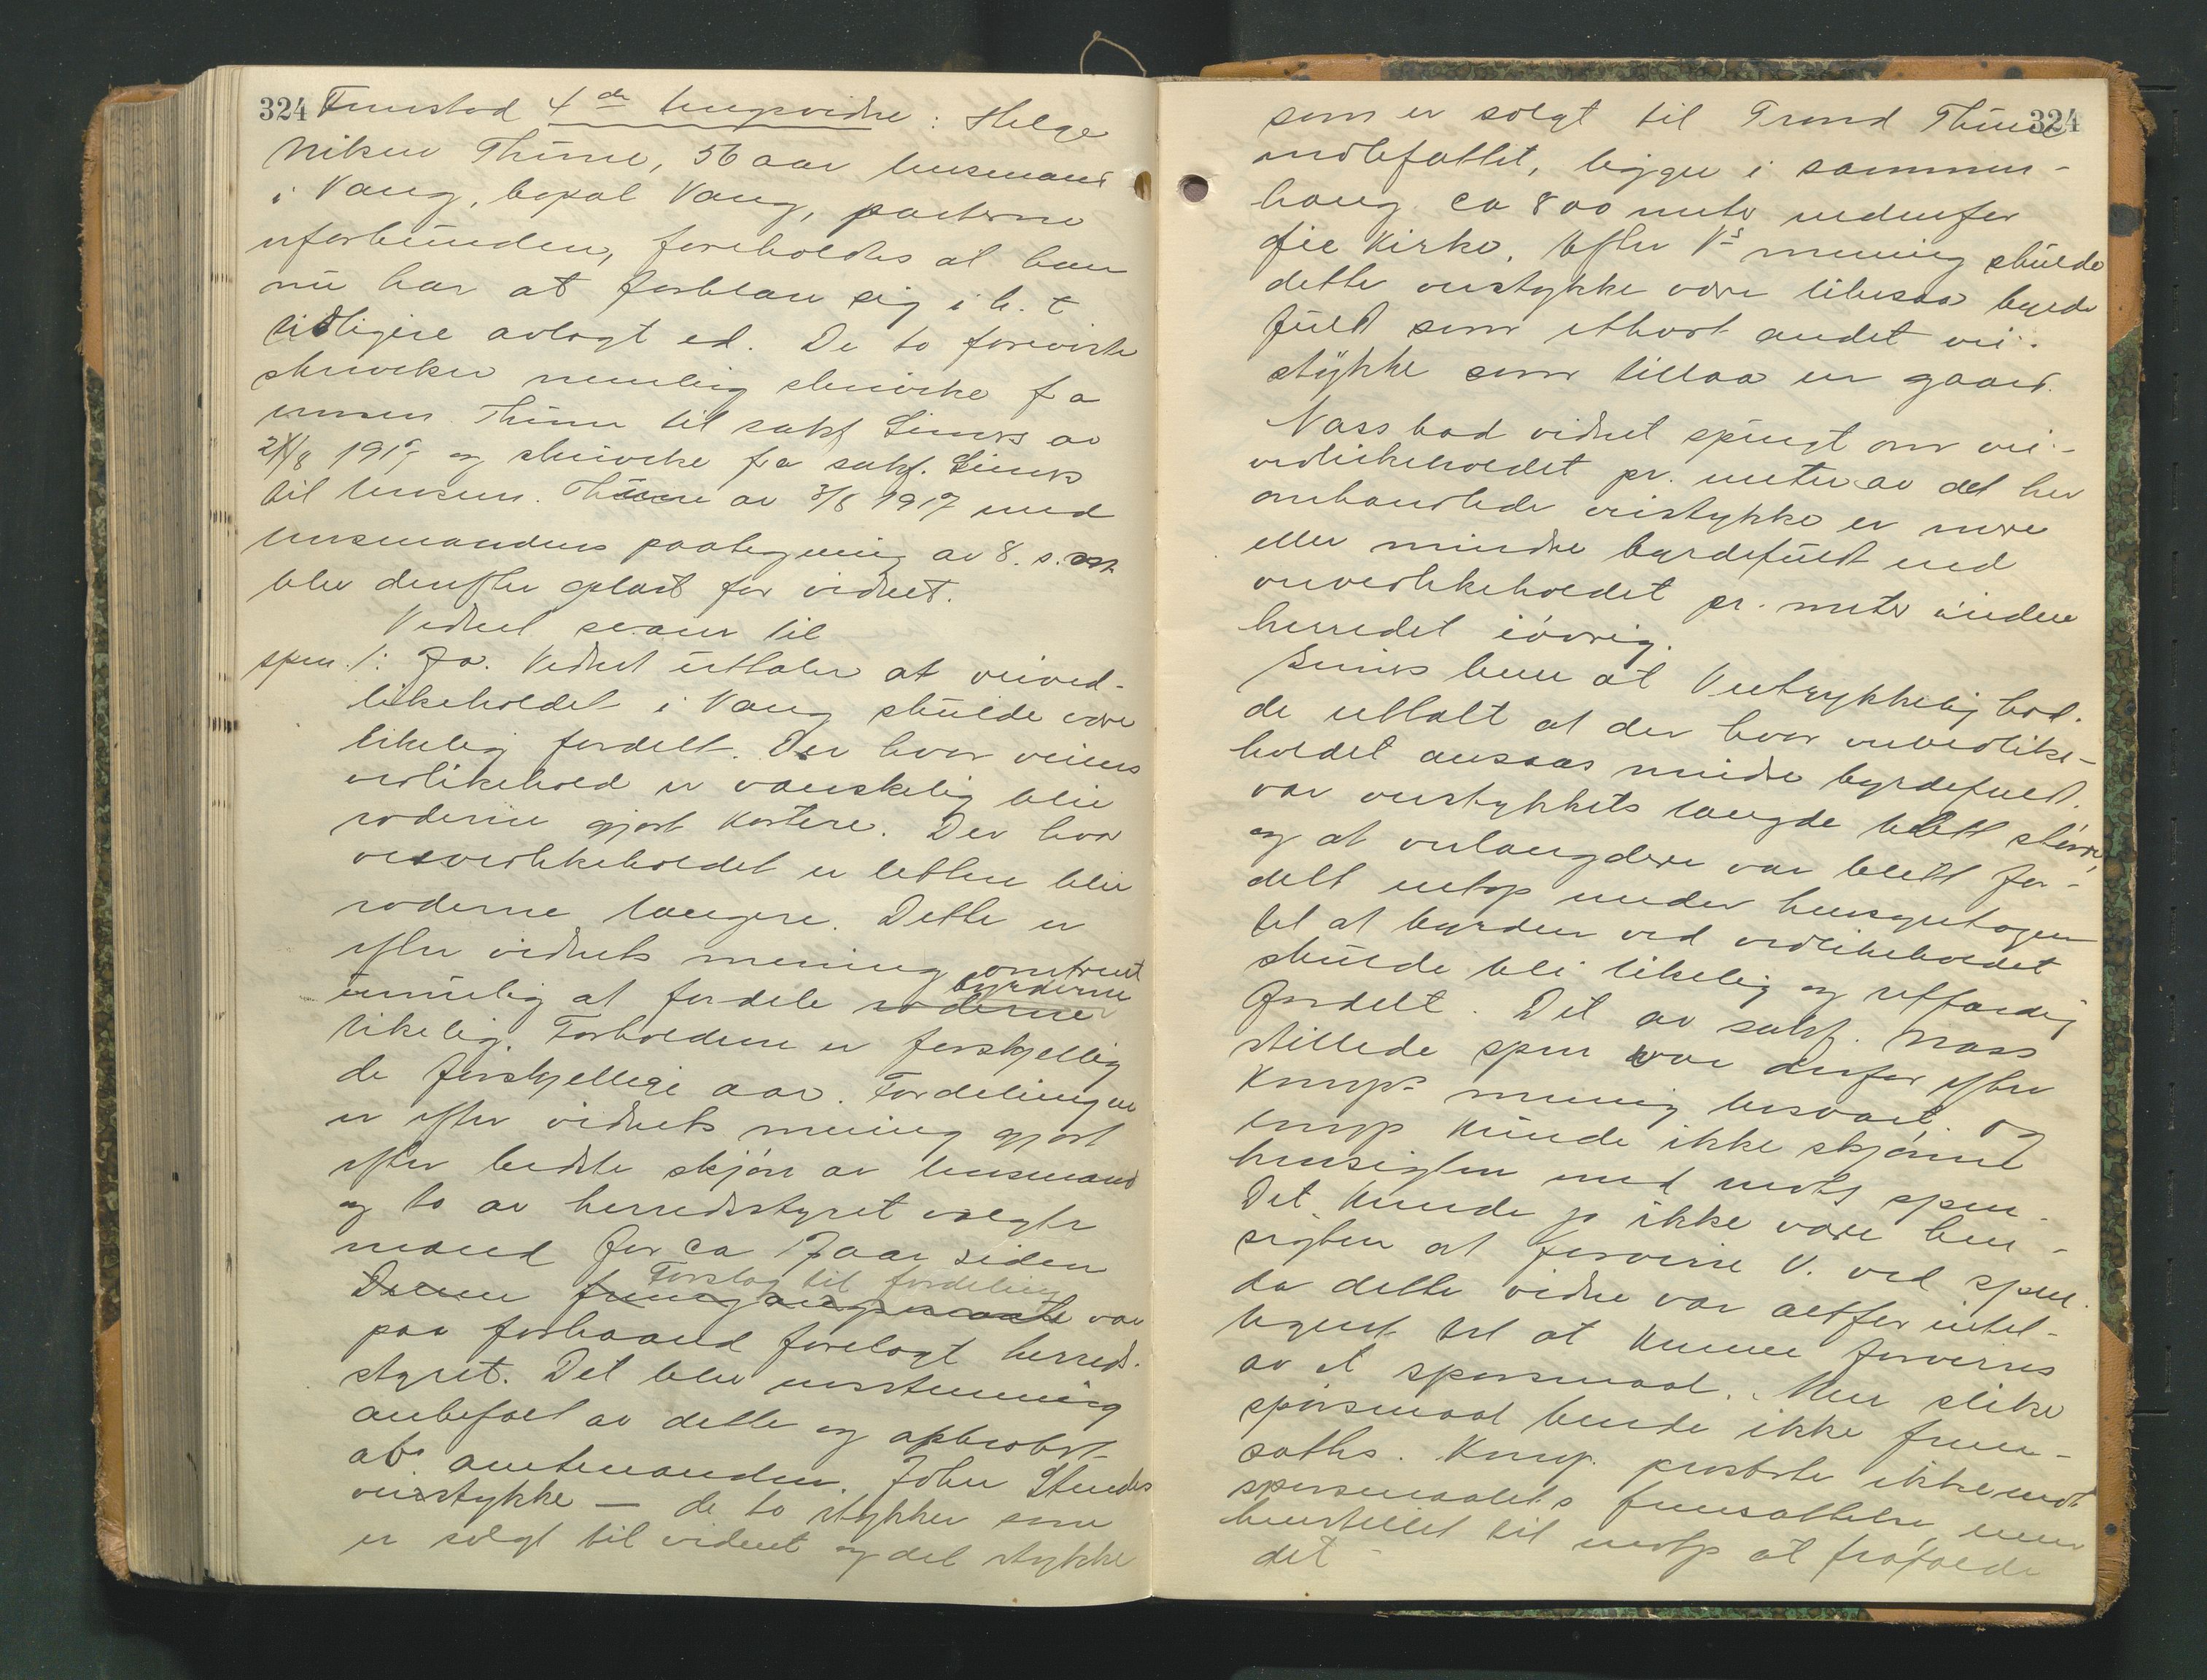 324 Fremstod 4de hugsvidne: Helge
Nilsen Thune, 56 aar lensmand
i Vang, bopæl Vang, parterne
uforbunden, foreholdes at han
nu har at forklare sig i h. t
tidligere avlagt ed. De to foreviste
skrivelser nemlig skrivelse fra
lensm. Thune til sakf Siewers av
1917 og skrivelse fra sakf. Siewers
til lensm. Thune av 3/8 1917 med
lensmandens paategning av 8. s. m.
blev derefter oplæst for vidnet.
Vidnet svarer til
spm. 1: Ja. Vidnet uttaler at veived-
likeholdet i Vang skulde være
likelig fordelt. Der hvor veiens
vedlikehold er vanskelig blir
roderne gjort kortere. Der hvor
veivedlikeholdet er lettere blir
roderne længere. Dette er
efter vidnets mening omtrent
umulig at fordele roderne byrderne
likelig. Forholdene er forskjellig
de forskjellige aar. Fordelingen
er efter vidnets mening gjort
efter bedste skjøn av lensmand
og to av herredsstyret valgte
mænd for ca 17 aar siden
Denne fremgangsmaate Forslag til fordeling var
paa forhaand forelagt herreds-
styret. Det blev enstemmig
anbefalt av dette og approbert
av amtmanden. John Stendes
veistykke — de to stykker som
er solgt til vidnet og det stykke
324
som er solgt til Trond Thune
indbefattet, ligger i sammen-
hæng ca 800 meter nedenfor
Øie Kirke. Efter Vs mening skulde
dette veistykke være likesaa byrde
fuld som ethvert andet vei-
stykke som tillaa en gaard.
Nass bad vidnet spurgt om vei-
vedlikeholdet pr. meter av det her
omhandlede veistykke er mere
eller mindre byrdefuldt end
veivedlikeholdet pr. meter inden
herredet iøvrig.
Siewers bem at V uttrykkelig had-
de uttalt at der hvor veivedlike-
holdet ansaas mindre byrdefuldt.
var veistykkets længde blett større,
og at veilængdene var blett for-
delt netop under hensyntagen
til at byrden ved vedlikeholdet
skulde bli likelig og retfærdig
fordelt. Det av sakf. Nass
stillede spm var derfor efter
Komps mening besvart. Og
komp kunde ikke skjønne
hensigten med motp spm.
Det kunde jo ikke være hen-
sigten at forvirre V. ved spm.
da dette vidne var altfor intel-
ligent til at kunne forvirres
av et spørsmaal. Men slike
spørsmaal burde ikke frem-
sættes. Komp. protesterte ikke mot
spørsmaalets fremsættelse, men
henstillet til motp at frafalde
det